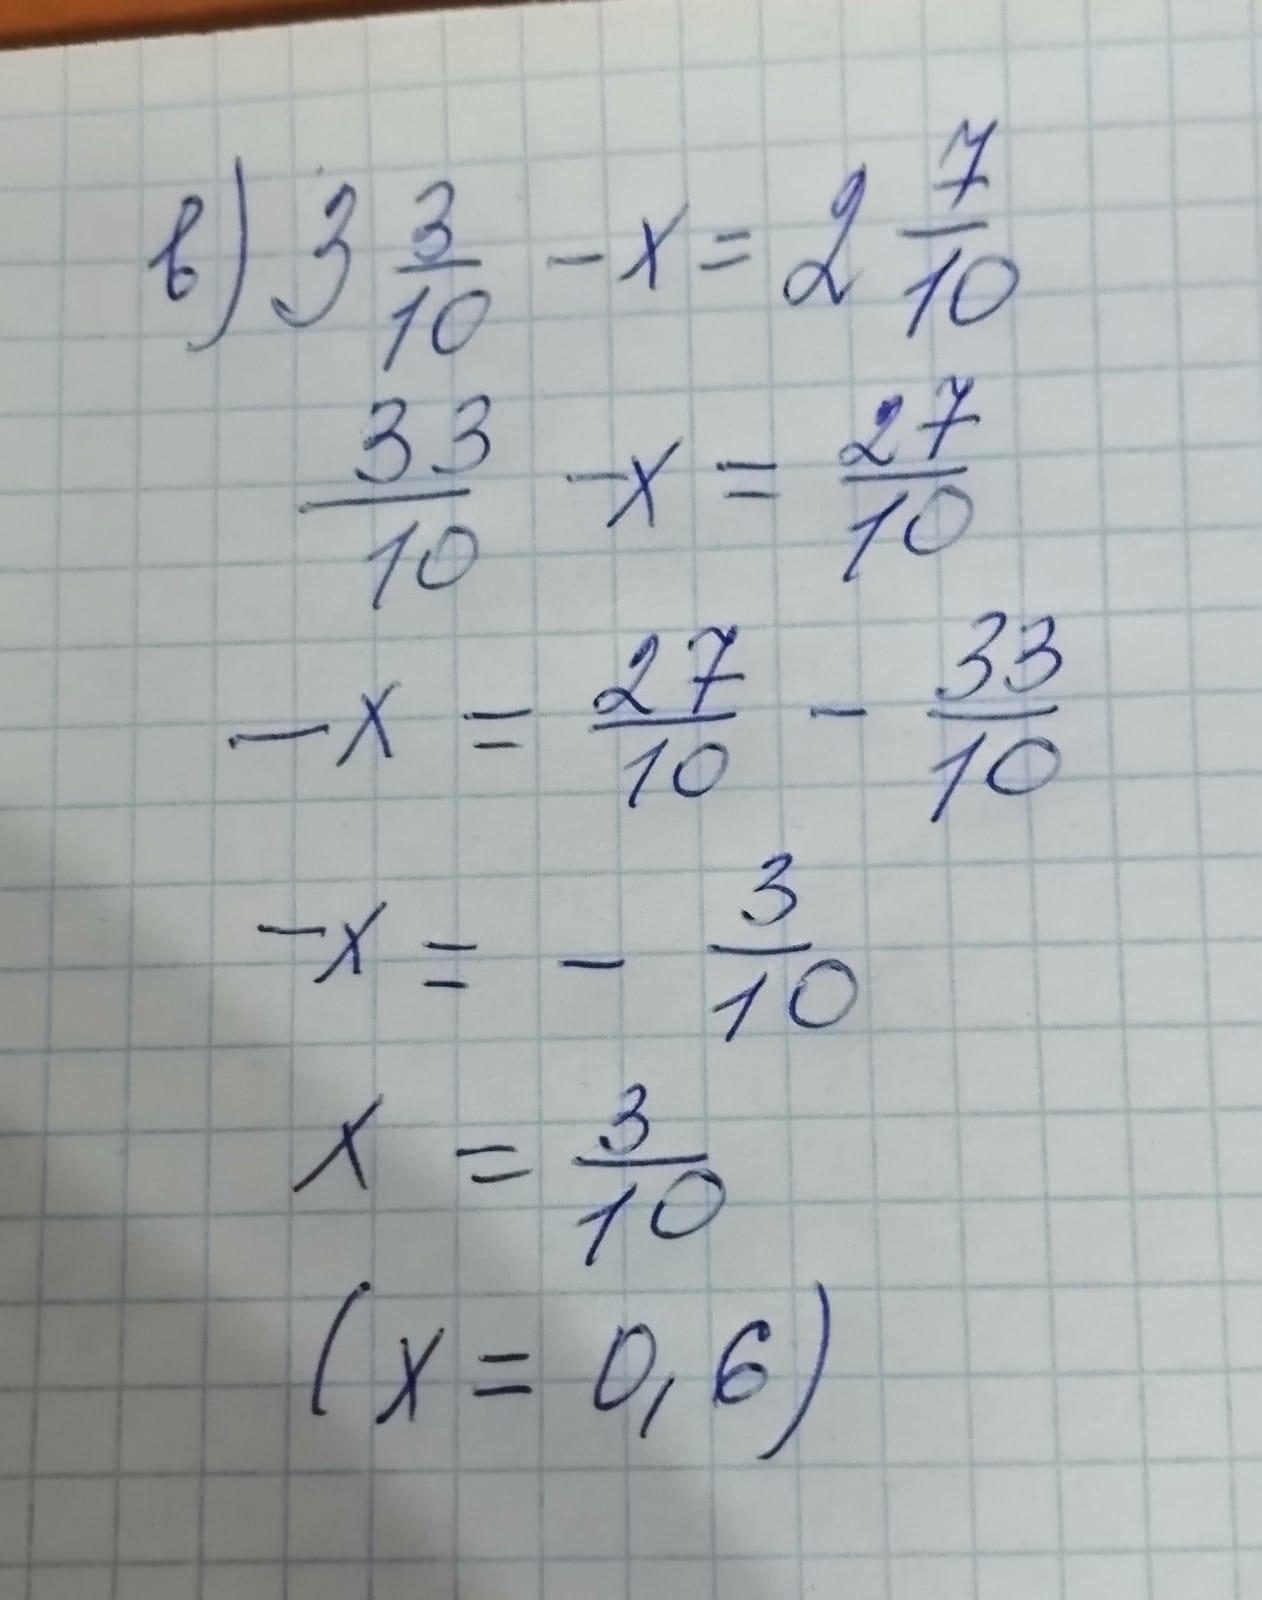 в) 3 3/10 - x = 2 7/10
33/10 - x = 27/10
- x = 27/10 - 33/10
- x = - 3/10
x = 3/10
(x = 0,6)